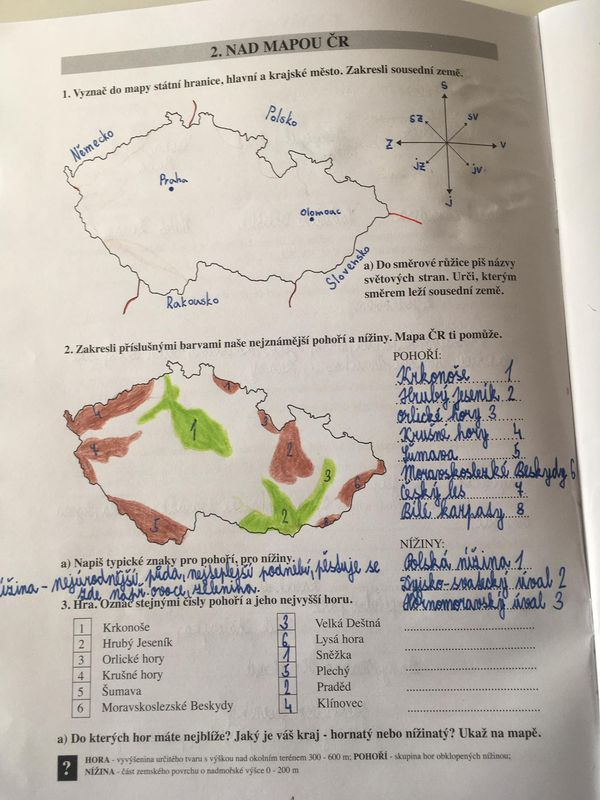 2. NAD MAPOU ČR
1. Vyznač do mapy státní hranice, hlavní a krajské město. Zakresli sousední země.
Německo
Polsko
Praha
Olomouc
Rakousko
Slovensko
S
SZ
SV
Z
V
jz
jv
J
a) Do směrové růžice piš názvy
světových stran. Urči, kterým
směrem leží sousední země.
2. Zakresli příslušnými barvami naše nejznámější pohoří a nížiny. Mapa ČR ti pomůže.
POHOŘÍ:
Krkonoše 1
Hrubý Jeseník 2
Orlické hory 3
Krušné hory 4
Šumava 5
Moravskoslezské Beskydy 6
Český les 7
Bílé Karpaty 8
1
4
3
1
2
7
3
6
5
2
8
NÍŽINY:
Polská nížina 1
Dyjsko-svratecký úval 2
Hornomoravský úval 3
a) Napiš typické znaky pro pohoří, pro nížiny.
nížina - nejúrodnější půda, nejteplejší podnebí, pěstuje se
zde např. ovoce, zelenina.
3. Hra. Označ stejnými čísly pohoří a jeho nejvyšší horu.
1 Krkonoše 3 Velká Deštná
2 Hrubý Jeseník 6 Lysá hora
3 Orlické hory 1 Sněžka
4 Krušné hory 5 Plechý
5 Šumava 2 Praděd
6 Moravskoslezské Beskydy 4 Klínovec
a) Do kterých hor máte nejblíže? Jaký je váš kraj - hornatý nebo nížinatý? Ukaž na mapě.
? HORA - vyvýšenina určitého tvaru s výškou nad okolním terénem 300 - 600 m; POHOŘÍ - skupina hor obklopených nížinou;
NÍŽINA - část zemského povrchu o nadmořské výšce 0 - 200 m